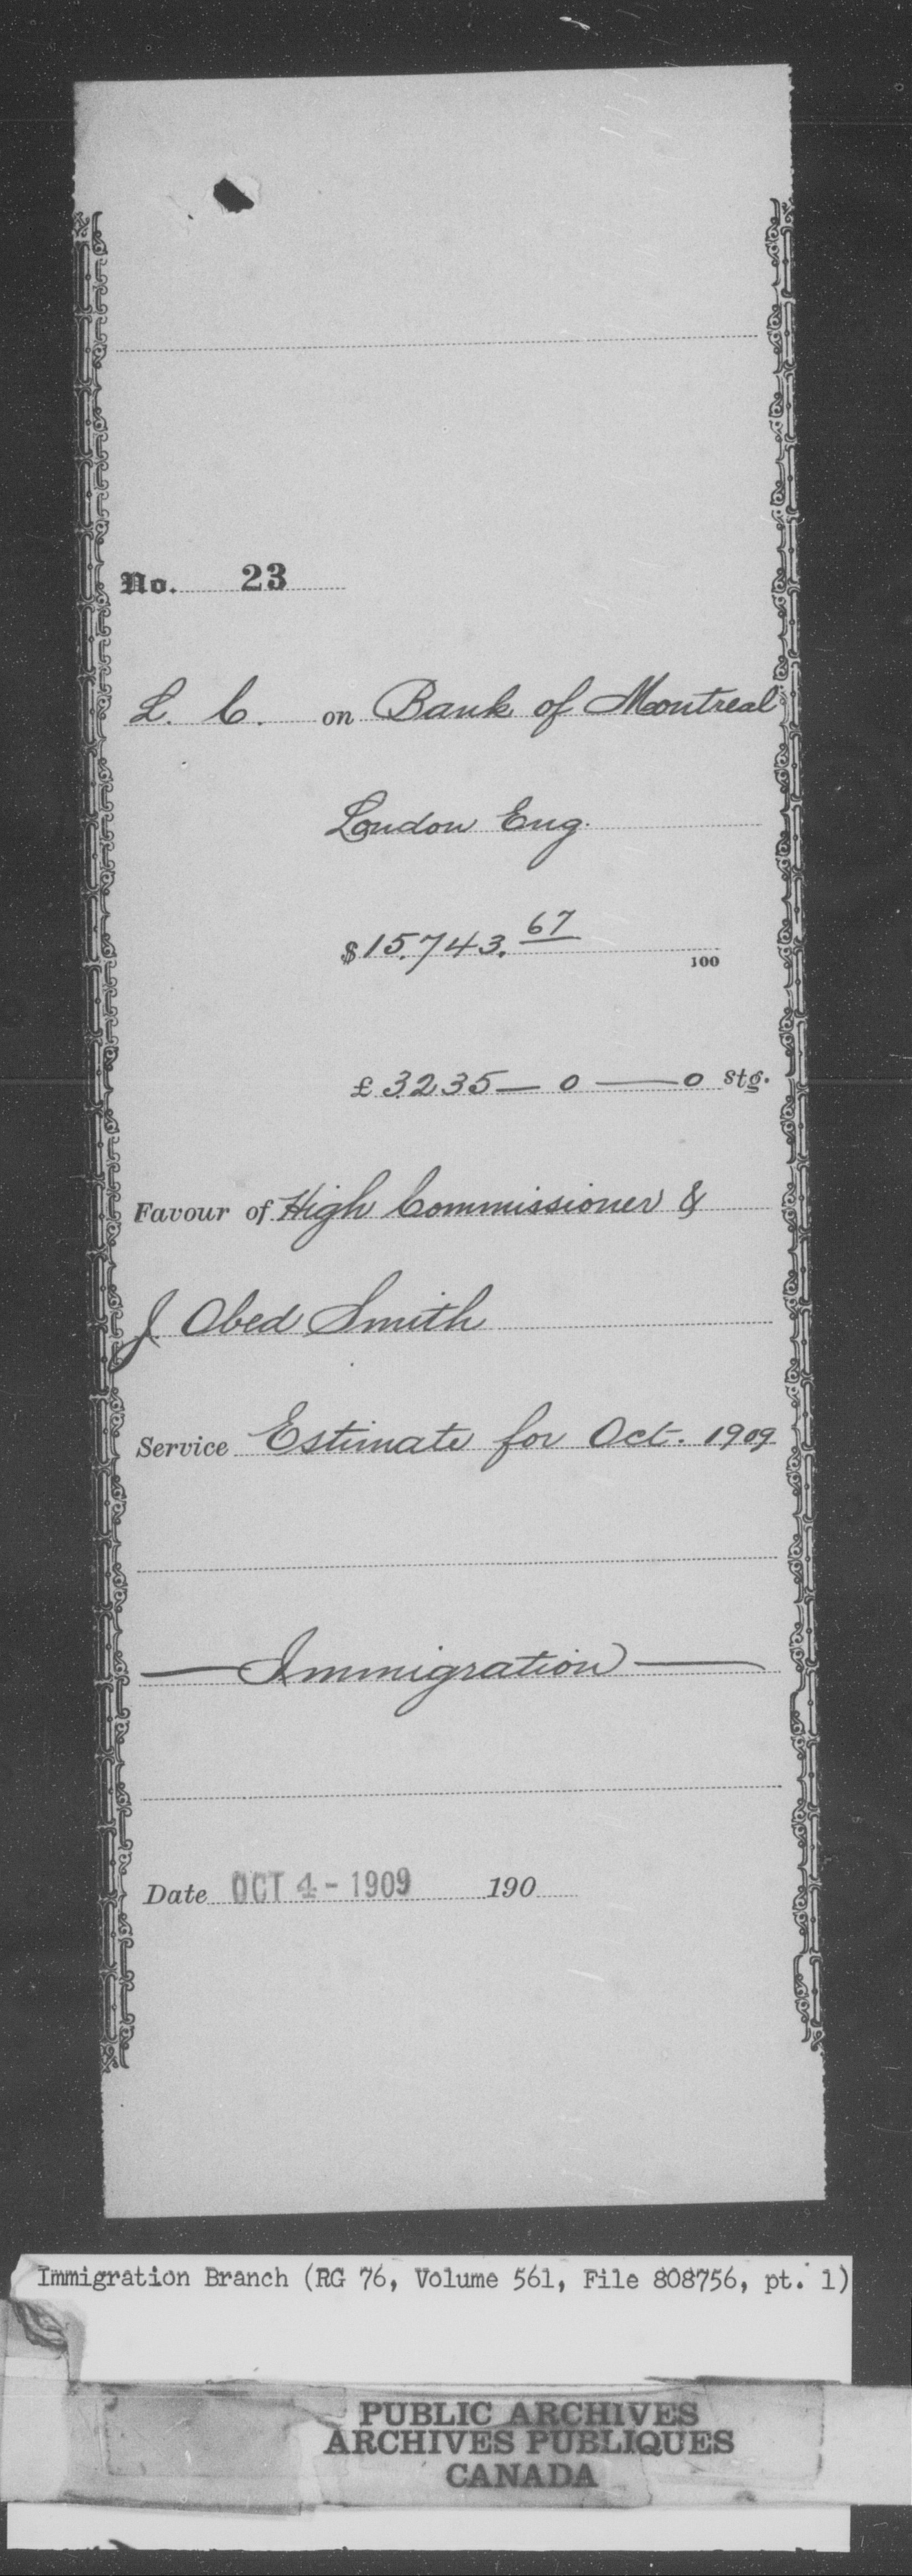 No. 23
L. C. on Bank of Montreal
London Eng.
$15,743.67/100
£3235—0—0 stg.
Favour of High Commissioner &
J. Obed Smith
Service Estimate for Oct. 1909
—Immigration—
Date OCT 4 - 1909 190
Immigration Branch (RG 76, Volume 561, File 808756, pt. 1)
PUBLIC ARCHIVES
ARCHIVES PUBLIQUES
CANADA